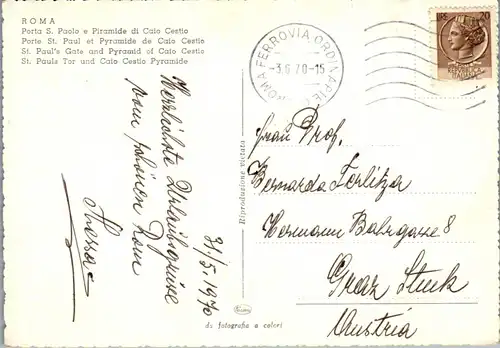 ROMA
Porta S. Paolo e Piramide di Caio Cestio
Porte St. Paul et Pyramide de Caio Cestio
St. Paul's Gate and Pyramid of Caio Cestio
St. Pauls Tor und Caio Cestio Pyramide
Herzlichste Urlaubsgrüsse
vom schönen Rom
31/5. 1970
Riproduzione vietata
da fotografia a colori
ROMA FERROVIA ORD
-3.6.70-15
LIRE 20
Frau Prof.
Bernarda
Hermann Bahrgasse 8
Graz
Austria